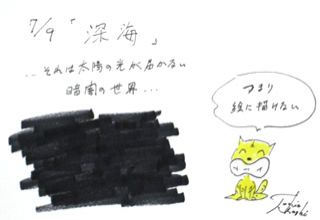 7/9「深海」
‥それは太陽の光が届かない
暗闇の世界…
つまり
絵に描けない